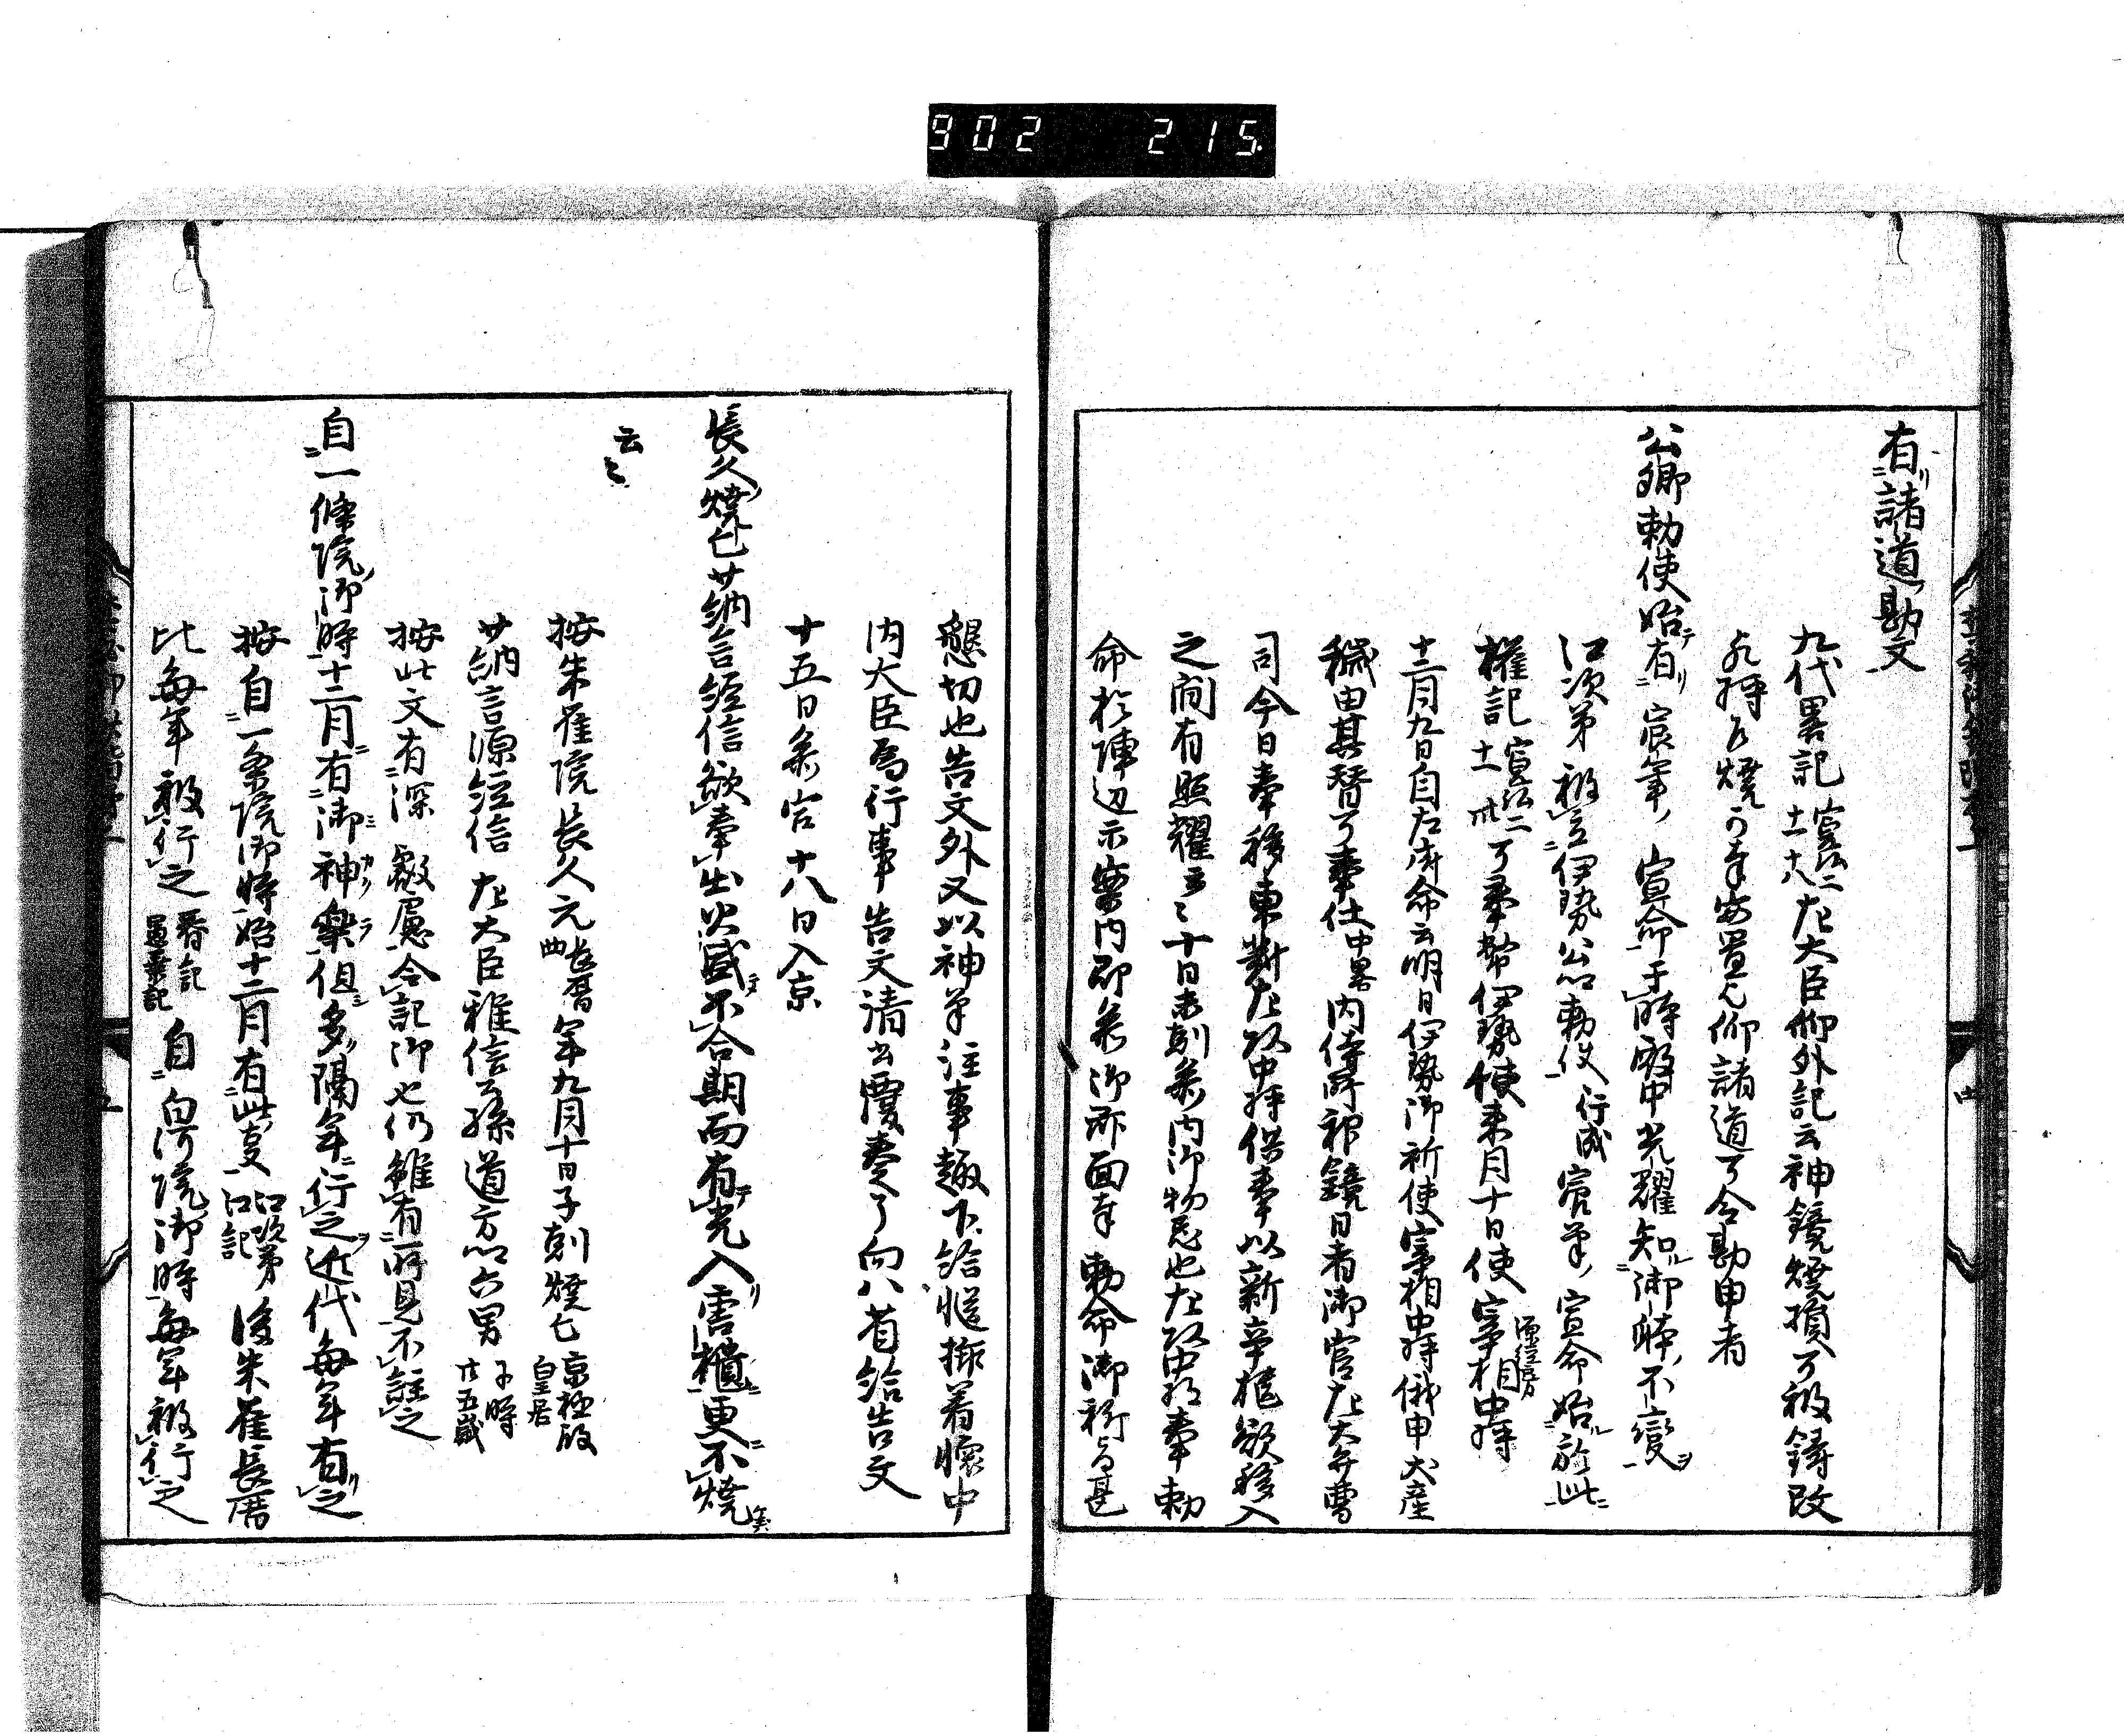 902 215
有諸道勘文
九代畧記寛弘二十一十八左大臣仰外記云神鏡焼損可被鋳改
哉将乍焼可奉安置哉仰諸道可令勘申者
公卿勅使始テ有リ宸筆ノ宣命于時殿中光耀知御躰ノ不ヲ變
江次第被立伊勢公卿勅使行成宸筆ノ宣命始レ於此ニ
權記寛弘二十一卅可奉幣伊勢使来月十日使宰相中将源經房
十二月九日自左府命云明日伊勢御祈使宰相中将俄申犬産
穢由其替可奉仕中畧内侍所神鏡日者御官左大弁曹
司今日奉移東對左頭中将供奉以新辛櫃欲移入
之間有照耀云〻十日未刻参内御物忌也左頭中将奉勅
命於陣辺示案内即参御所面奉勅命御祈旨甚
懇切也告文外又以神筆注事趣下給慥挿着懐中
内大臣為行事告文清書覆奏了向八省給告文
十五日参宮十八日入京
長久ノ焼亡廾納言經信欲奉出火盛ニテ不合期而有テ光入リ唐櫃ニ更ニ不焼矣
云〻
按朱雀院長久元長暦四年九月十日子剋焼亡京極殿皇居
廾納言源經信左大臣雅信孫道方卿六男于時廾五歳
按此文有深叡慮令記御也仍雖有所見不註之
自一條院ノ御時十二月ニ有御神樂ミカグラ但シ多ク隔年ニ行之ヲ近代毎年有リ之
按自一条院御時始十二月有此事江次第江記後朱雀長暦
比毎年被行之春記愚要記自白河院御時毎年被行之